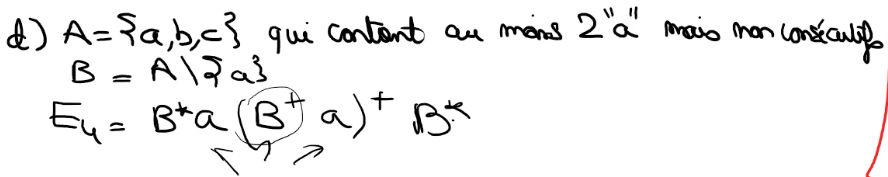 d) A={a,b,c} qui contant au moins 2"a" mais non consécutifs
B = A\{a}
E₄ = B*a(B⁺ a)⁺ B*